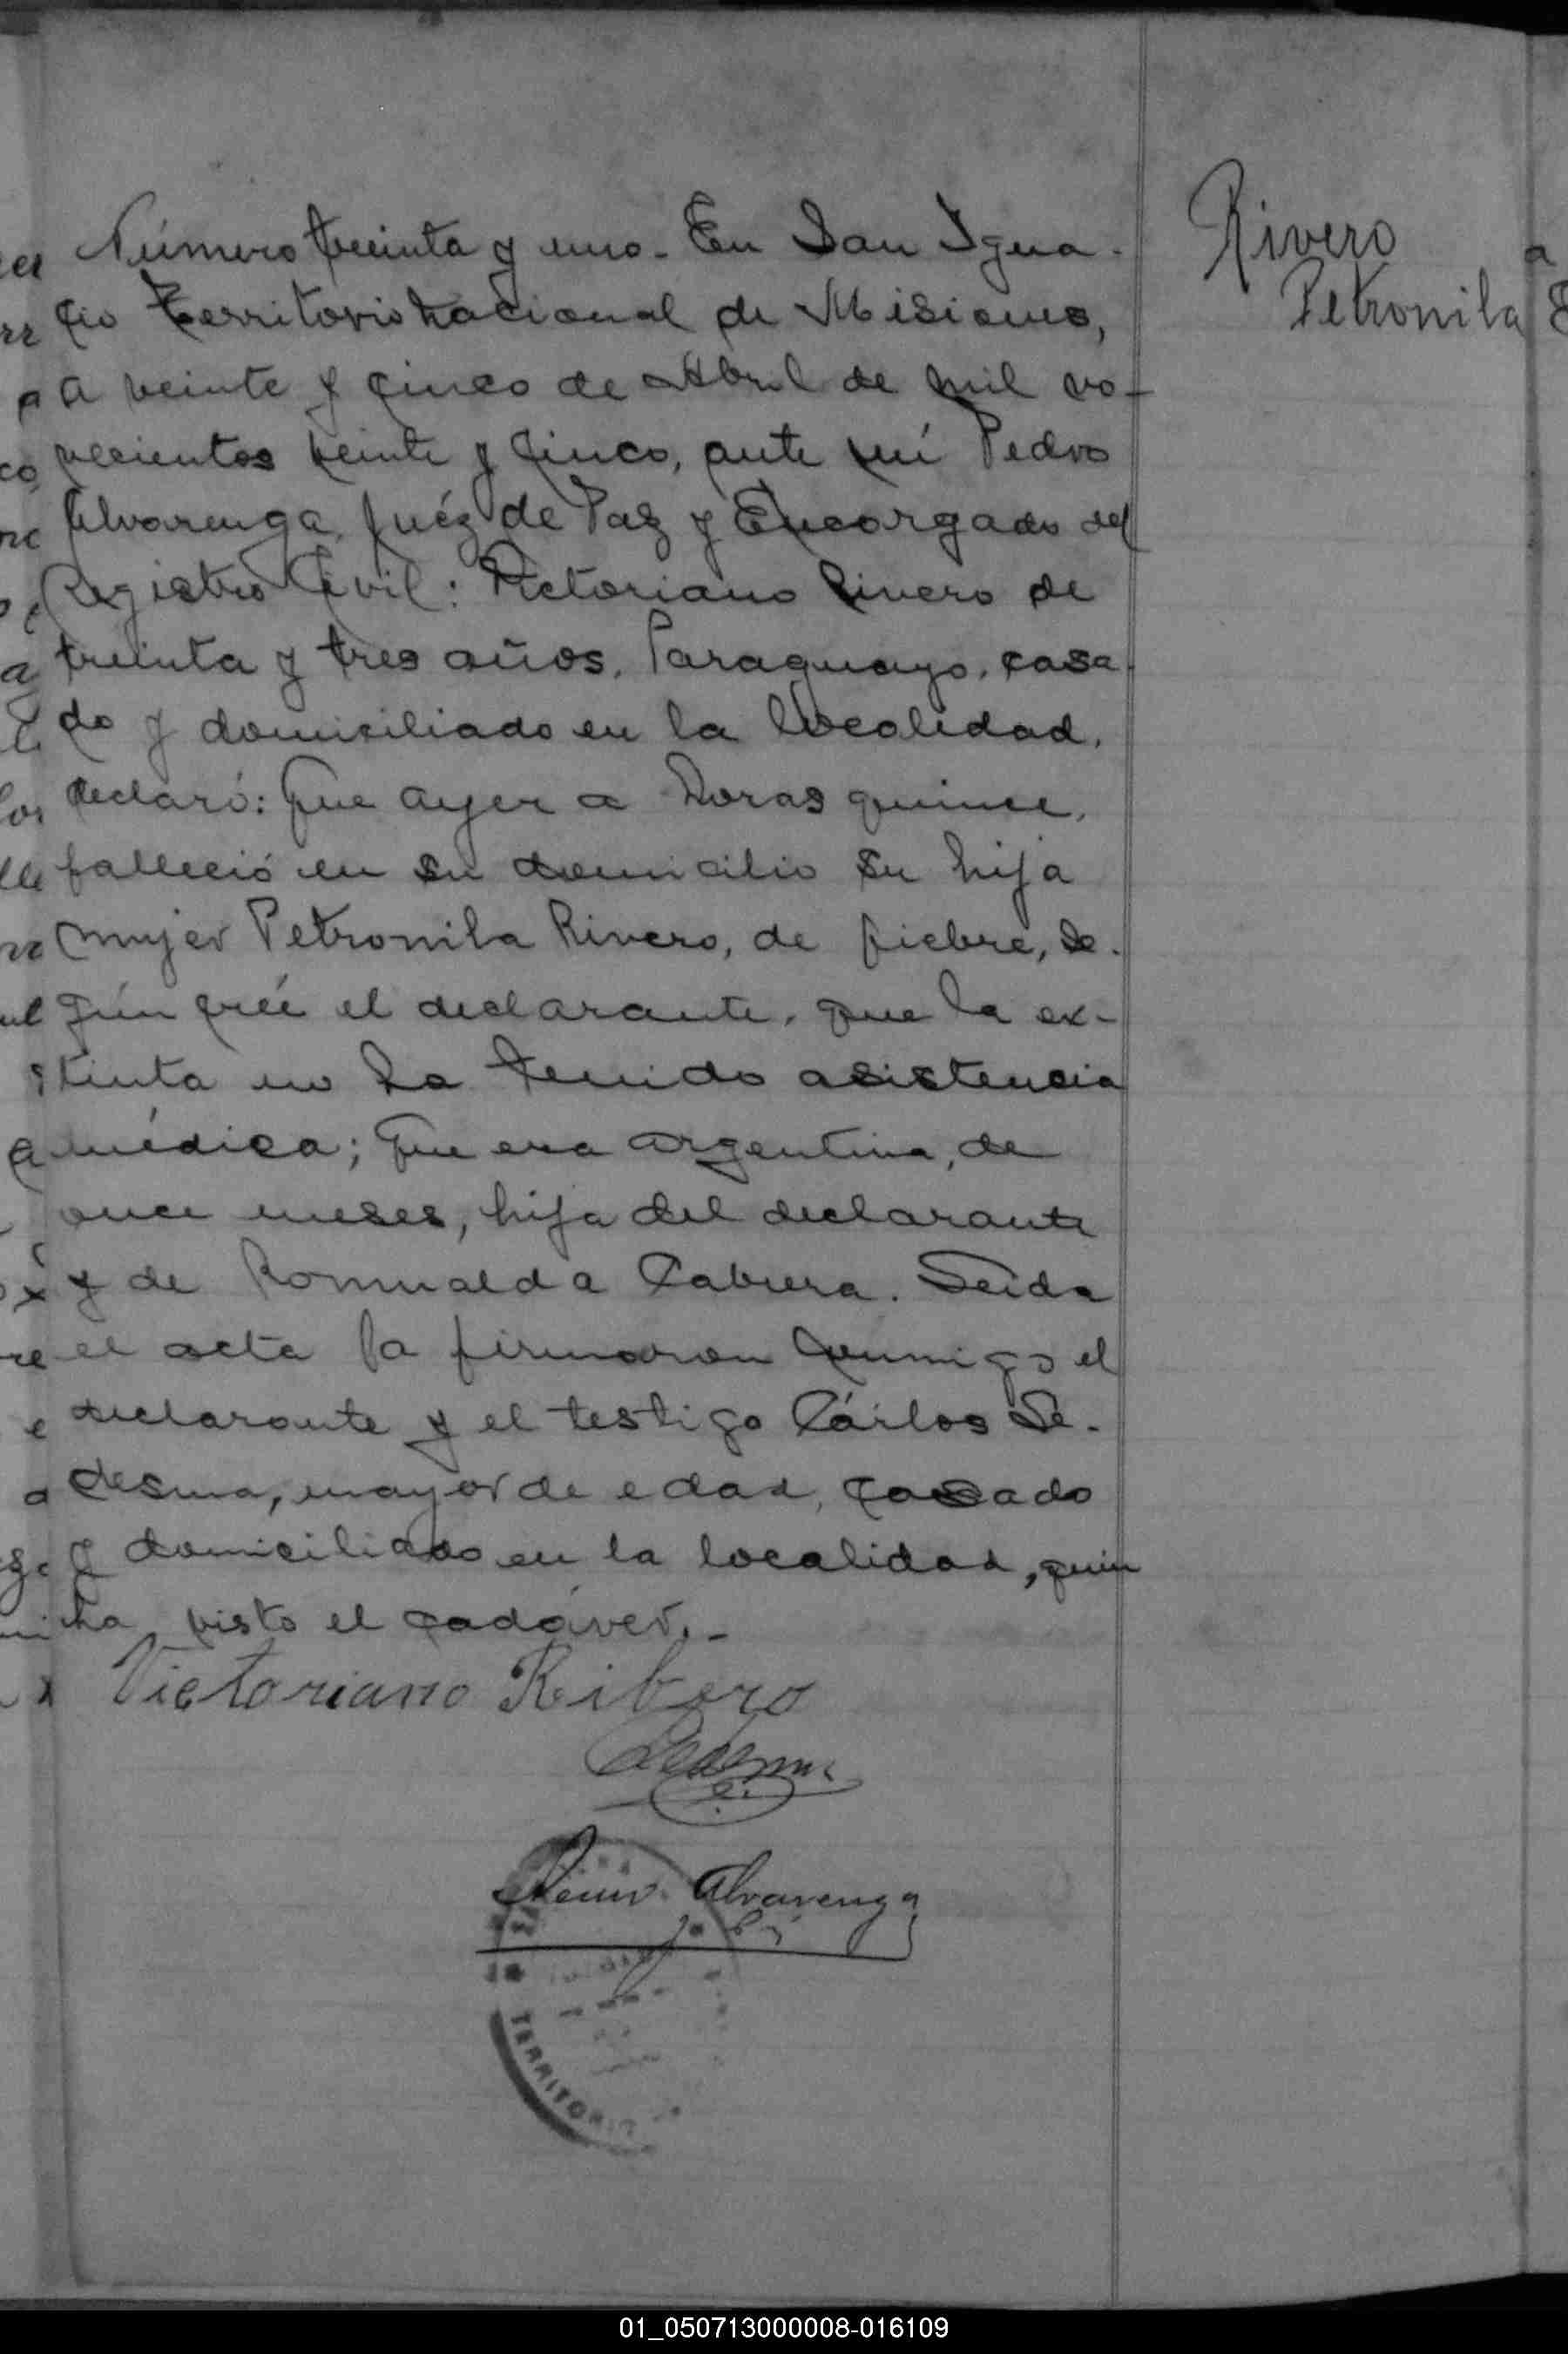 Rivero
Petronila
Número treinta y uno. En San Igna-
cio Territorio Nacional de Misiones,
a veinte y cinco de Abril de mil no-
vecientos veinte y cinco, ante mí Pedro
Alvarenga, Juéz de Paz y Encargado del
Registro Civil: Victoriano Rivero de
treinta y tres años, Paraguayo, casa-
do y domiciliado en la localidad,
declaró: Que ayer a horas quince,
falleció en su domicilio su hija
mujer Petronila Rivero, de fiebre, se-
gún créé el declarante, que la ex-
tinta no ha tenido asistencia
médica; que era argentina, de
once meses, hija del declarante
y de Romualda Cabrera. Leida
el acta la firmaron conmigo el
declarante y el testigo Cárlos Le-
desma, mayor de edad, casado
y domiciliado en la localidad, quien
ha visto el cadáver.-
Victoriano Ribero
Ledesma
Alvarenga
TERRITORIO
01_050713000008-016109